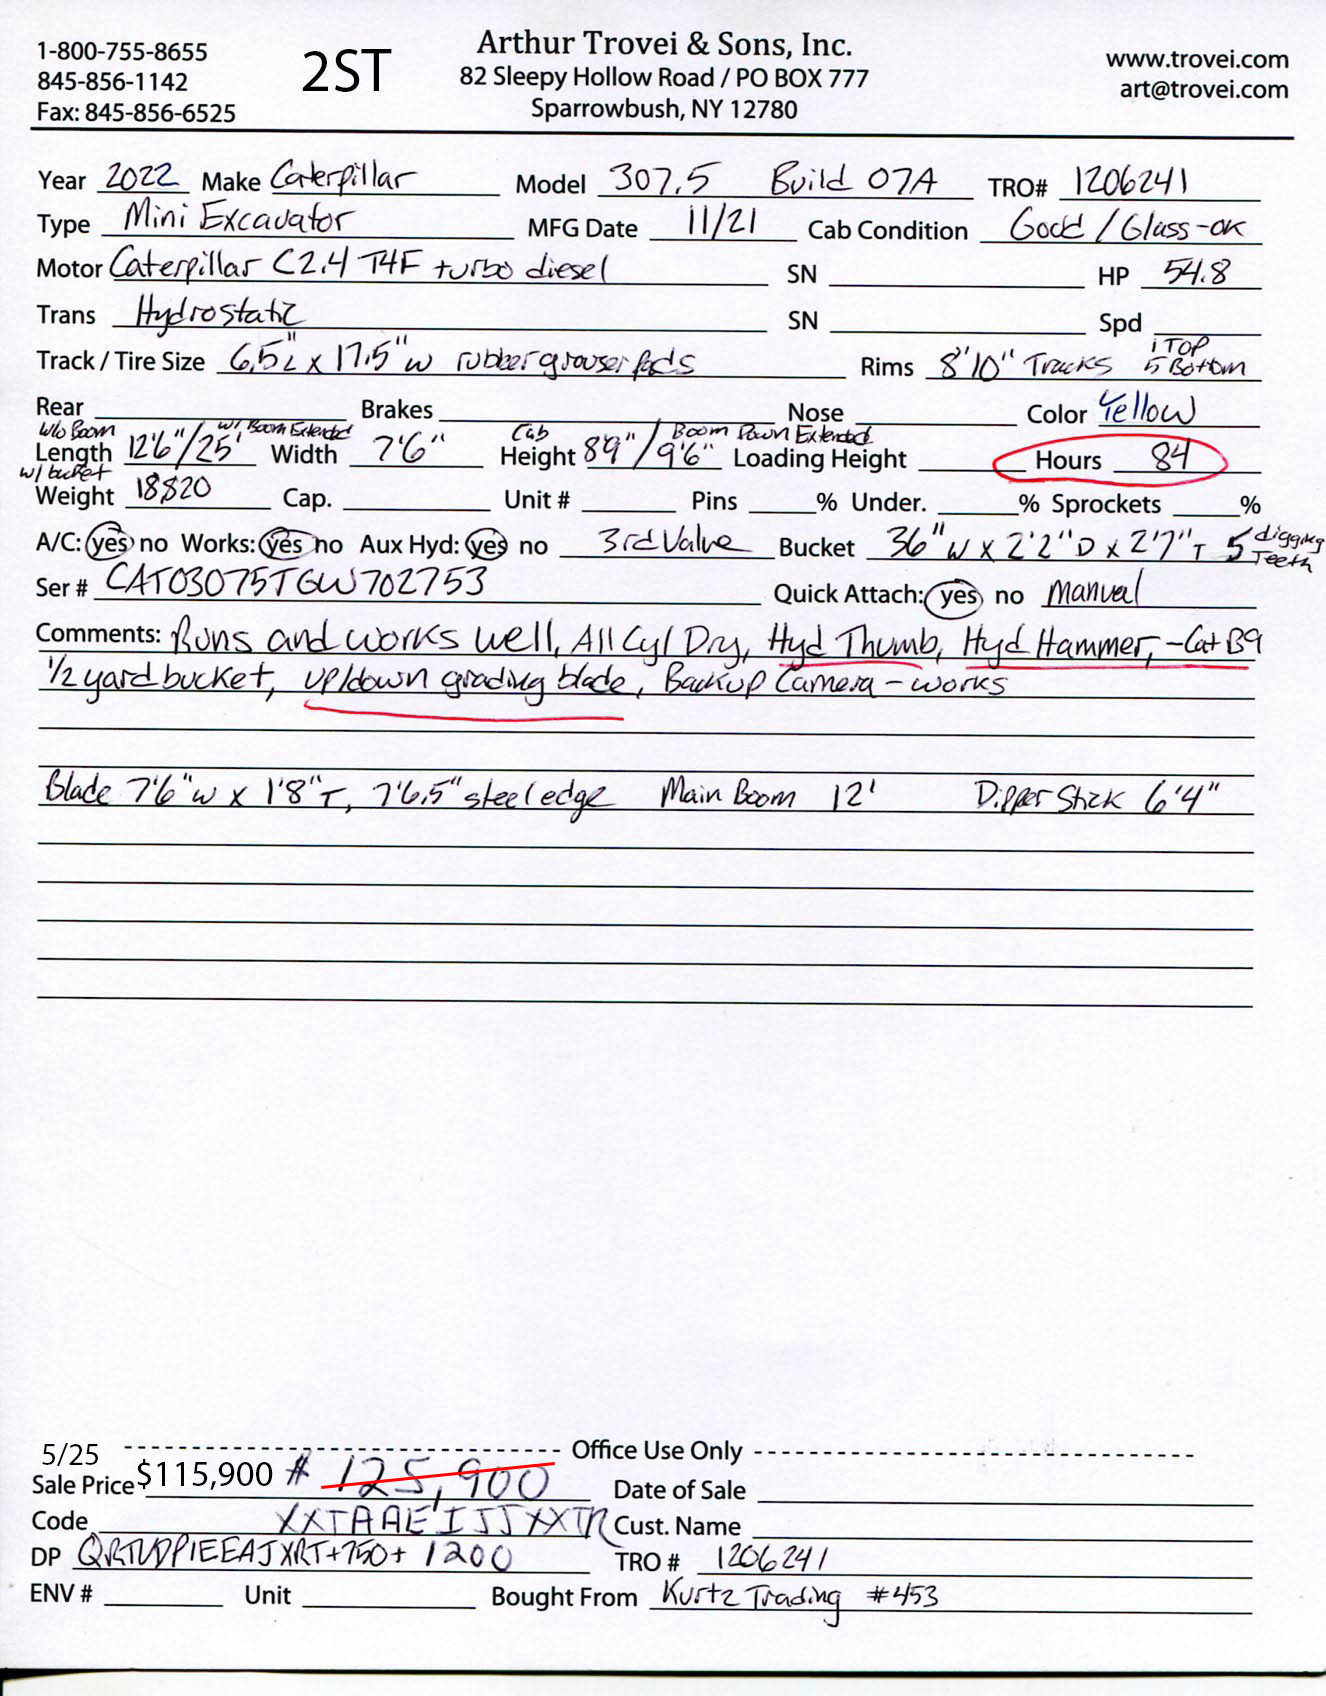 1-800-755-8655
845-856-1142
Fax: 845-856-6525
2ST
Arthur Trovei & Sons, Inc.
82 Sleepy Hollow Road / PO BOX 777
Sparrowbush, NY 12780
www.trovei.com
art@trovei.com
Year 2022 Make Caterpillar Model 307.5 Build 07A TRO# 1206241
Type Mini Excavator MFG Date 11/21 Cab Condition Good / Glass-ok
Motor Caterpillar C2.4 T4F turbo diesel SN HP 54.8
Trans Hydrostatic SN Spd
Track / Tire Size 6.5"L x 17.5"W rubber grouser pads Rims 8'10" Tracks 1 TOP 5 Bottom
Rear Brakes Nose Color Yellow
w/o Boom w/ Boom Extended Cab Boom Down Extended
Length 12'6"/25' Width 7'6" Height 8'9"/9'6" Loading Height Hours 84
w/ bucket
Weight 18820 Cap. Unit # Pins % Under. % Sprockets %
A/C: yes no Works: yes no Aux Hyd: yes no 3rd Valve Bucket 36"W x 2'2"D x 2'7"T 5 digging Teeth
Ser # CAT03075TGW702753 Quick Attach: yes no Manual
Comments: Runs and works well, All Cyl Dry, Hyd Thumb, Hyd Hammer, -Cat B9
1/2 yard bucket, up/down grading blade, Backup Camera - works
Blade 7'6"W x 1'8"T, 7'6.5" steel edge Main Boom 12' Dipper Stick 6'4"
5/25 Office Use Only
Sale Price $115,900 # 125,900 Date of Sale
Code XXTAAEIJJXXTR Cust. Name
DP +750+ 1200 TRO # 1206241
ENV # Unit Bought From Kurtz Trading #453